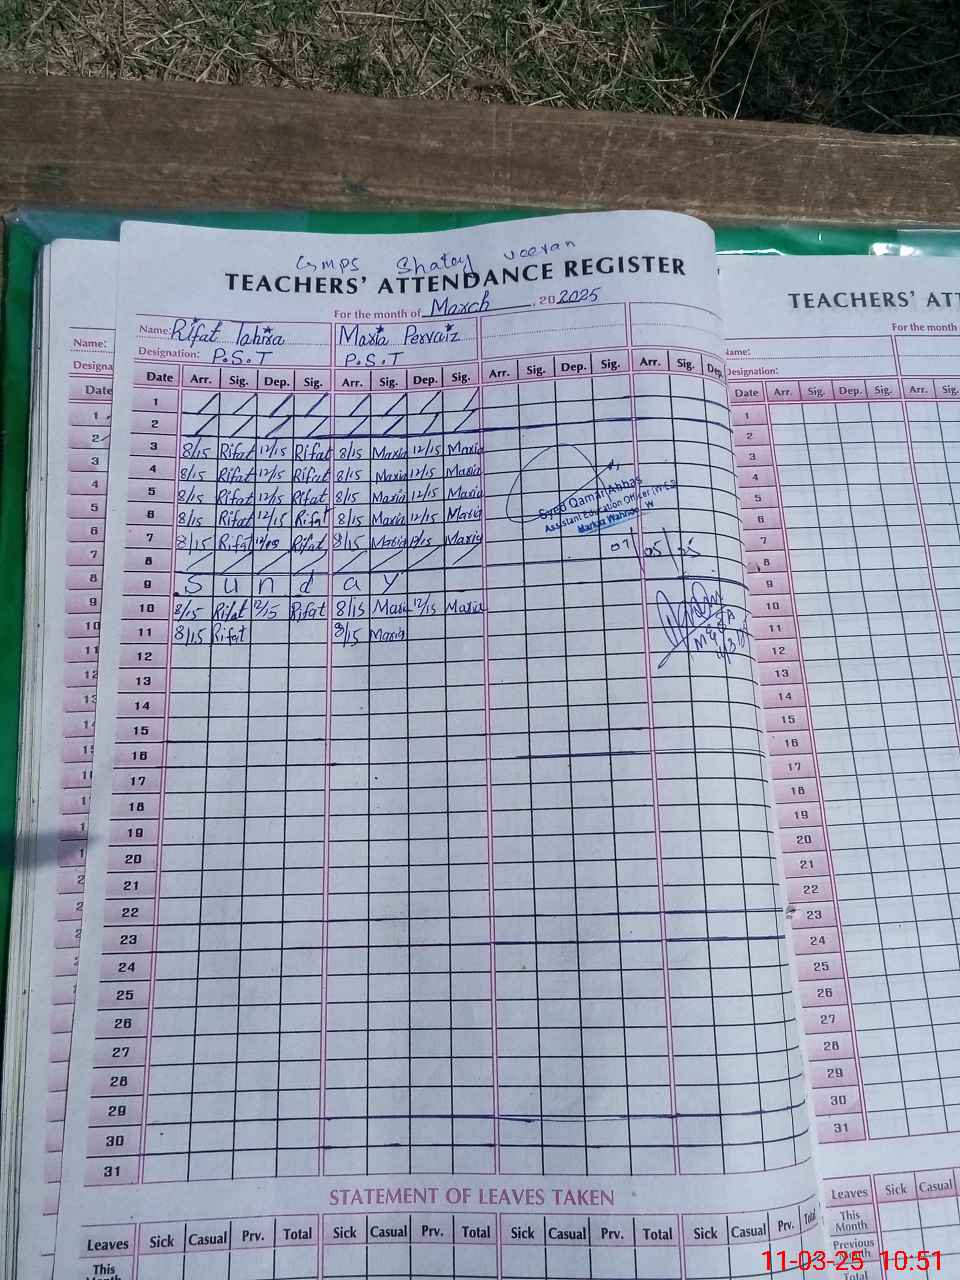 GMPS Shatay veeran
TEACHERS' ATTENDANCE REGISTER
For the month of March, 20 2025
Name: Rifat Tahira Maria Pervaiz
Designation: P.S.T P.S.T
Date Arr. Sig. Dep. Sig. Arr. Sig. Dep. Sig. Arr. Sig. Dep. Sig. Arr. Sig. Dep.
1
2
3 8/15 Rifat 12/15 Rifat 8/15 Maria 12/15 Maria
4 8/15 Rifat 12/15 Rifat 8/15 Maria 12/15 Maria
5 8/15 Rifat 12/15 Rifat 8/15 Maria 12/15 Maria
6 8/15 Rifat 12/15 Rifat 8/15 Maria 12/15 Maria
7 8/15 Rifat Rifat 8/15 Maria 12/15 Maria
8
9 Sunday
10 8/15 Rifat 12/15 Rifat 8/15 Maria 12/15 Maria
11 8/15 Rifat 8/15 Maria
12
13
14
15
16
17
18
19
20
21
22
23
24
25
26
27
28
29
30
31
Syed Qamar Abbas
Assistant Education Officer
Markaz
STATEMENT OF LEAVES TAKEN
Leaves Sick Casual Prv. Total Sick Casual Prv. Total Sick Casual Prv. Total Sick Casual Prv. Total
This
Month
Name:
Designa
Date
1
2
3
4
5
6
7
8
9
10
11
12
TEACHERS' ATT
For the month
Name:
Designation:
Date Arr. Sig. Dep. Sig. Arr. Sig.
1
2
3
4
5
6
7
8
9
10
11
12
13
14
15
16
17
18
19
20
21
22
23
24
25
26
27
28
29
30
31
Leaves Sick Casual
This
Month
Previous
Month
Total
11-03-25 10:51